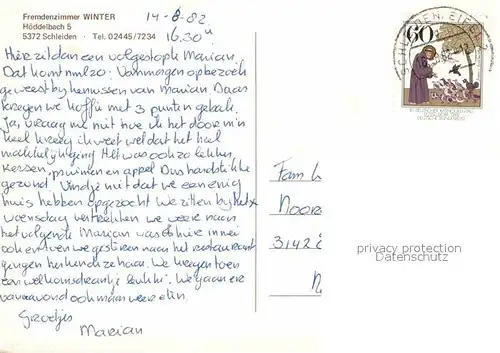 Fremdenzimmer WINTER
Höddelbach 5
5372 Schleiden · Tel. 02445/7234
14-8-82
16.30 u
Hier zit dan een volgestopte Marian.
Dat komt nml zo: Vanmorgen op bezoek
geweest bij kennissen van marian Daar
kregen we koffie met 3 punten gebak,
Ja, vraag me niet hoe ik het door mijn
keel kreeg ik weet wel dat het heel
makkelijk ging
was ook zo lekker,
kersen, pruimen en appel Dus hardstikke
gezond. Vind je niet dat we een enig
huis hebben opgezocht We zitten bij het
woensdag vertrekken we weer naar
het volgende Marian was hier
ook en toen we gisteren naar het restaurant
gingen herkende ze haar. We kregen toen
een welkomsdrankje leuk hè. We gaan er
vanavond ook maar weer etin.
Groetjes
Marian
SCHLEIDEN, EIFEL
60
Fam
Noor
3142
N
privacy protection
Datenschutz